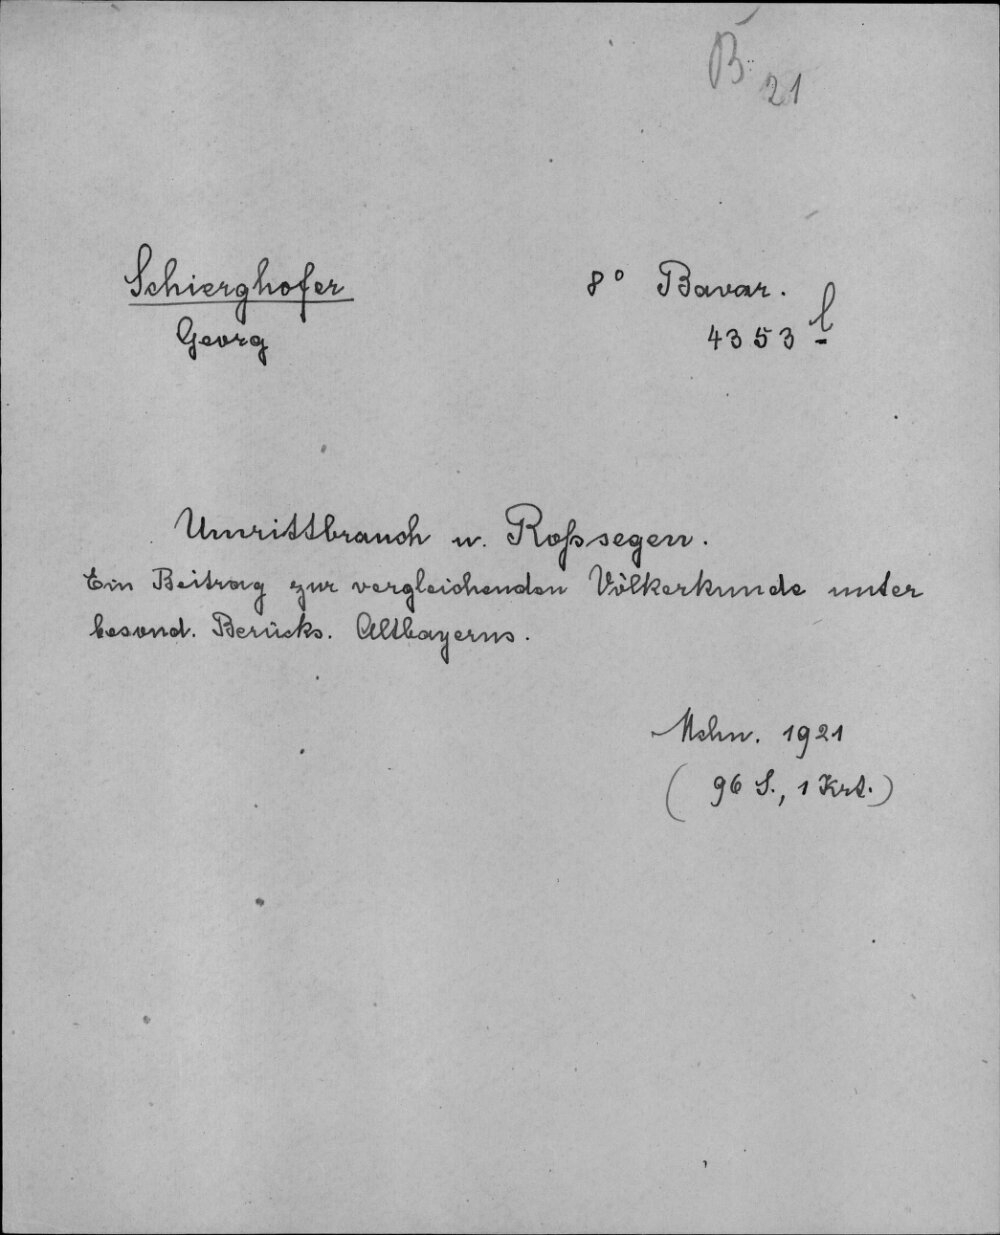 B 21
Schierghofer
Georg
8° Bavar.
4353 l
Umrittbrauch u. Roßsegen.
Ein Beitrag zur vergleichenden Völkerkunde unter
besond. Berücks. Altbayerns.
Mchn. 1921
(96 S., 1 Krt.)